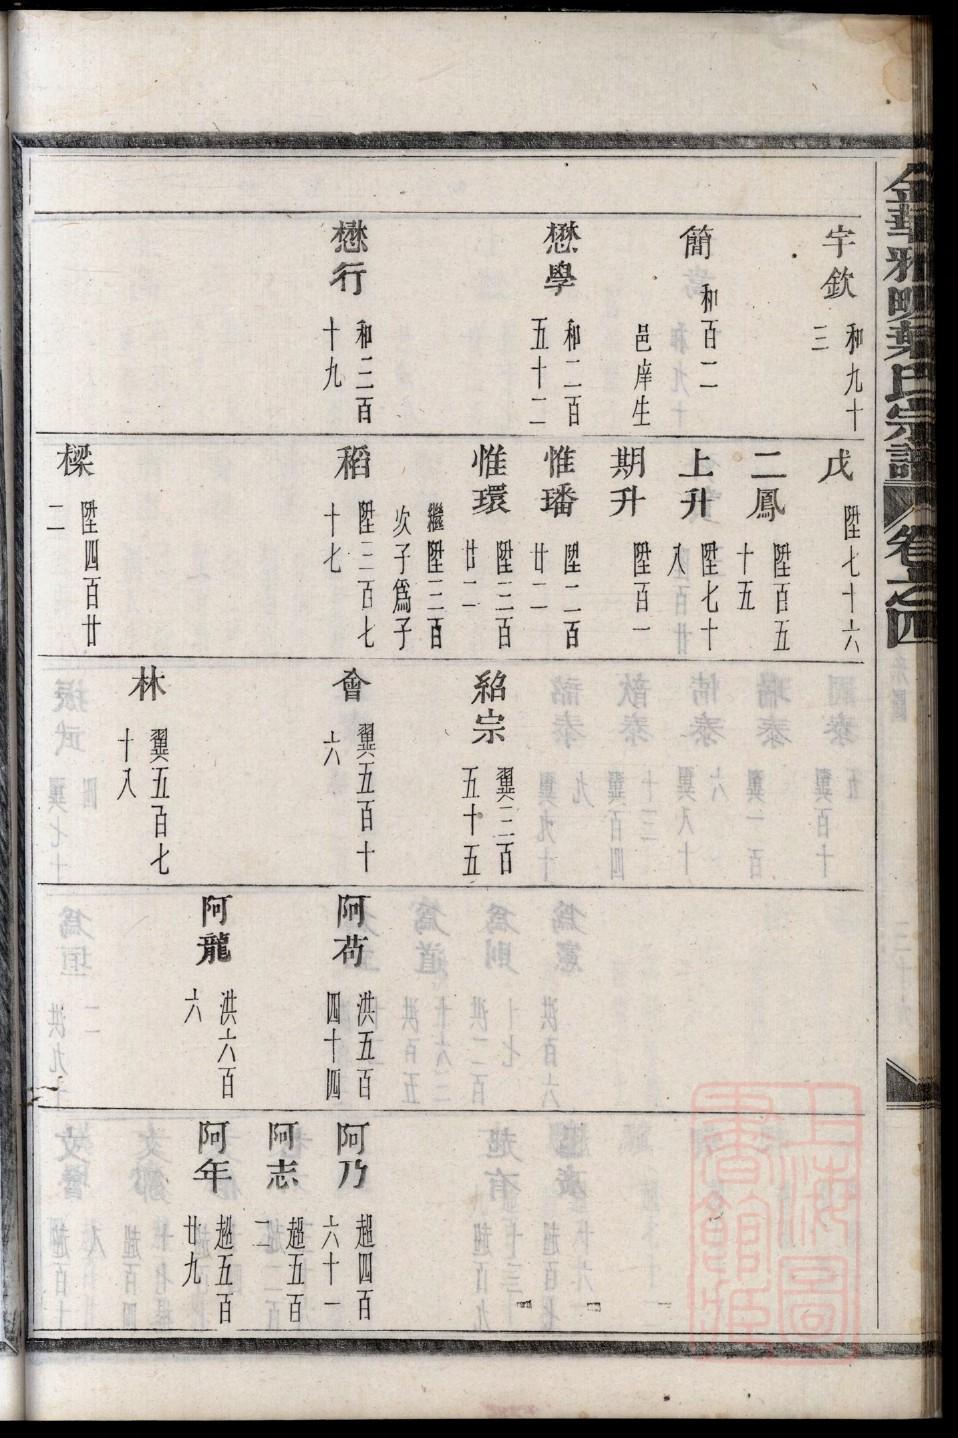 金華雅畈葉氏宗譜 卷之四
宇欽 和九十三
簡 和百二 邑庠生
懋學 和二百五十二
懋行 和三百十九
戊 陞七十六
二鳳 陞百五十五
上升 陞七十八
期升 陞百一
惟璠 陞二百廿二
惟環 陞三百廿二
繼陞三百次子爲子
稻 陞三百七十七
樑 陞四百廿二
紹宗 翼三百五十五
會 翼五百十六
林 翼五百七十八
阿苟 洪五百四十四
阿龍 洪六百六
阿乃 超四百六十一
阿志 超五百二
阿年 超五百廿九
上海圖書館藏